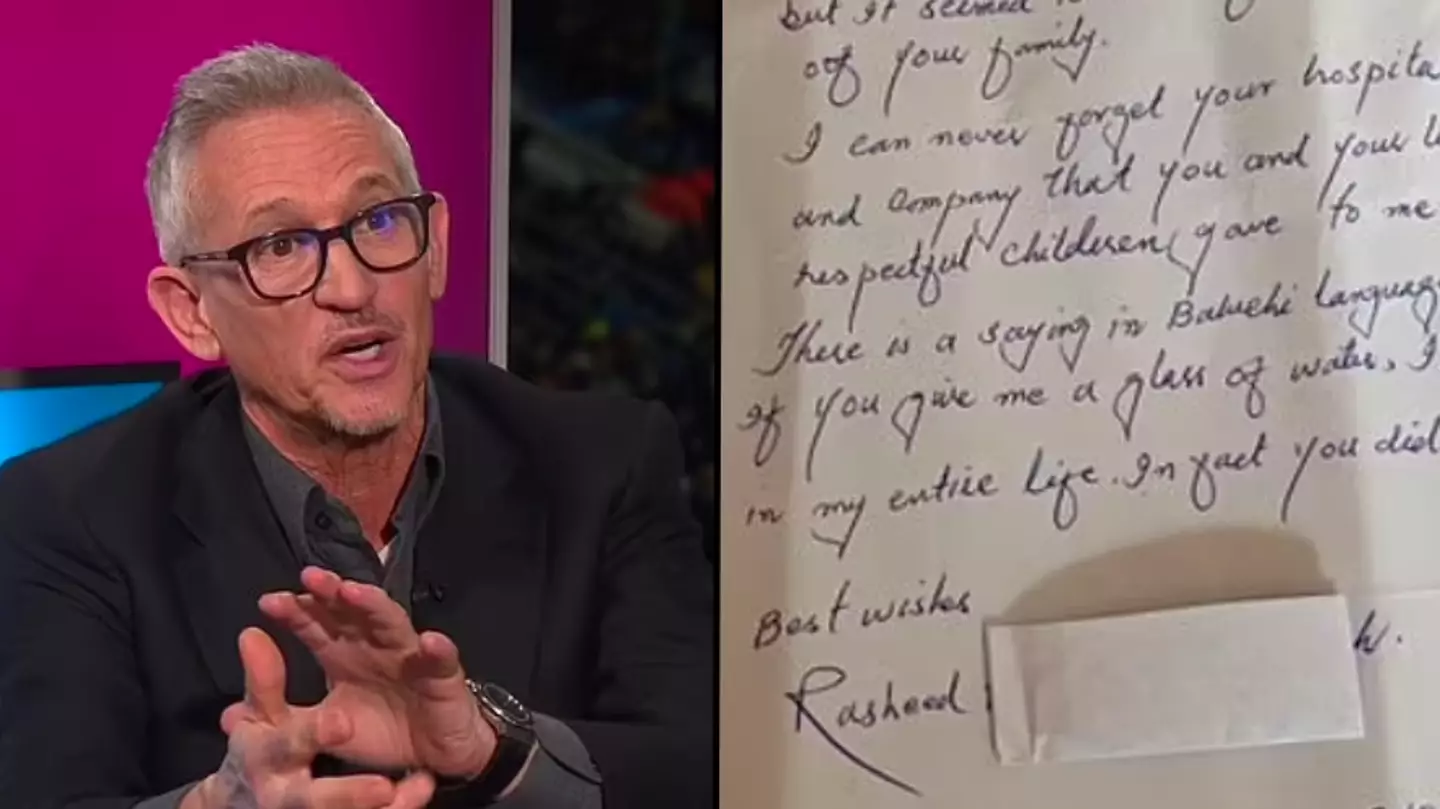 but it seemed
of your family.
I can never forget your hospita
and Company that you and your
respectful childeren gave to me
There is a saying in Baluchi languag
If you give me a glass of water, I
in my entire life. In fact you did
Best wishes
Rasheed h.